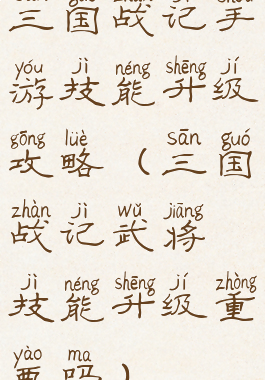 三国战记手
yóu jì néng shēng jí
游技能升级
gōng lüè sān guó
攻略（三国
zhàn jì wǔ jiāng
战记武将
jì néng shēng jí zhòng
技能升级重
yào ma
要吗）